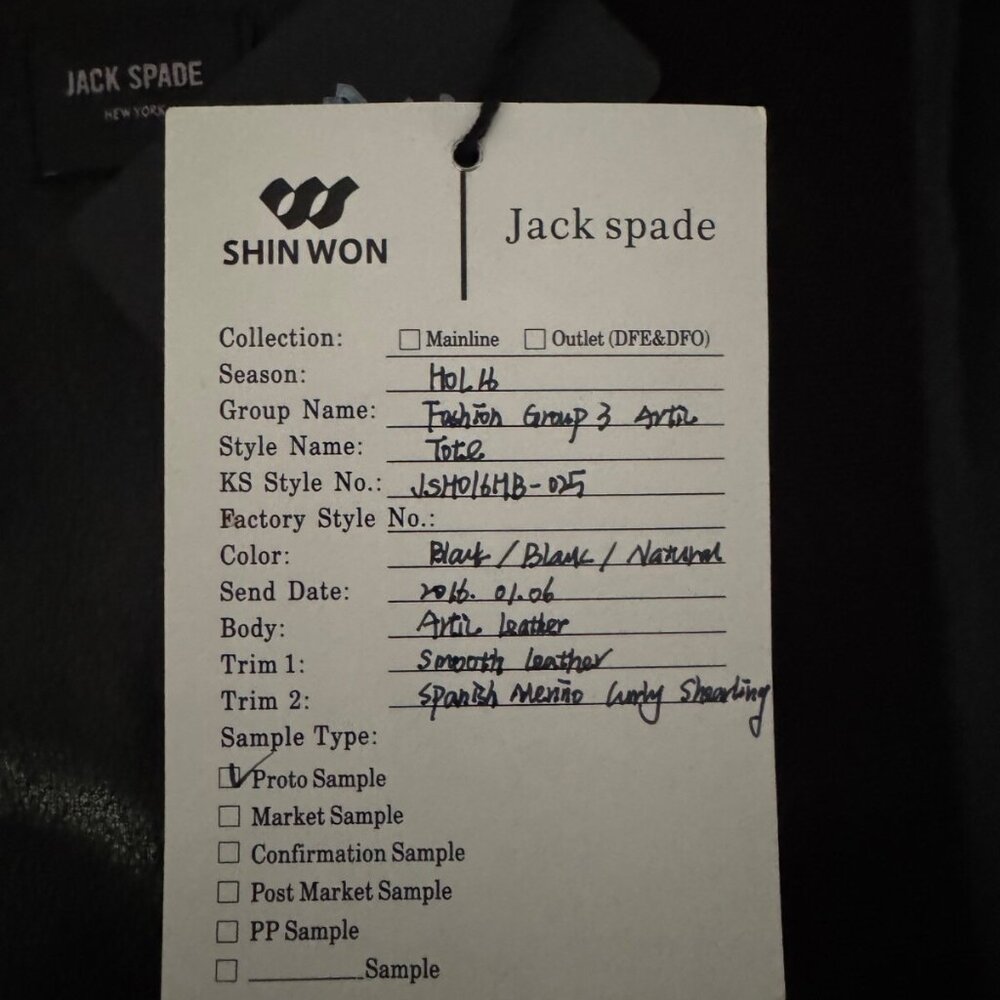 JACK SPADE
NEW YORK
SHIN WON
Jack spade
Collection: Mainline Outlet (DFE&DFO)
Season: HOL 16
Group Name: Fashion Group 3 Artic
Style Name: Tote
KS Style No.: JSH016HB-025
Factory Style No.:
Color: Black / Black / Natural
Send Date: 2016. 01.06
Body: Artic leather
Trim 1: Smooth leather
Trim 2: Spanish Merino Curly Shearling
Sample Type:
Proto Sample
Market Sample
Confirmation Sample
Post Market Sample
PP Sample
Sample